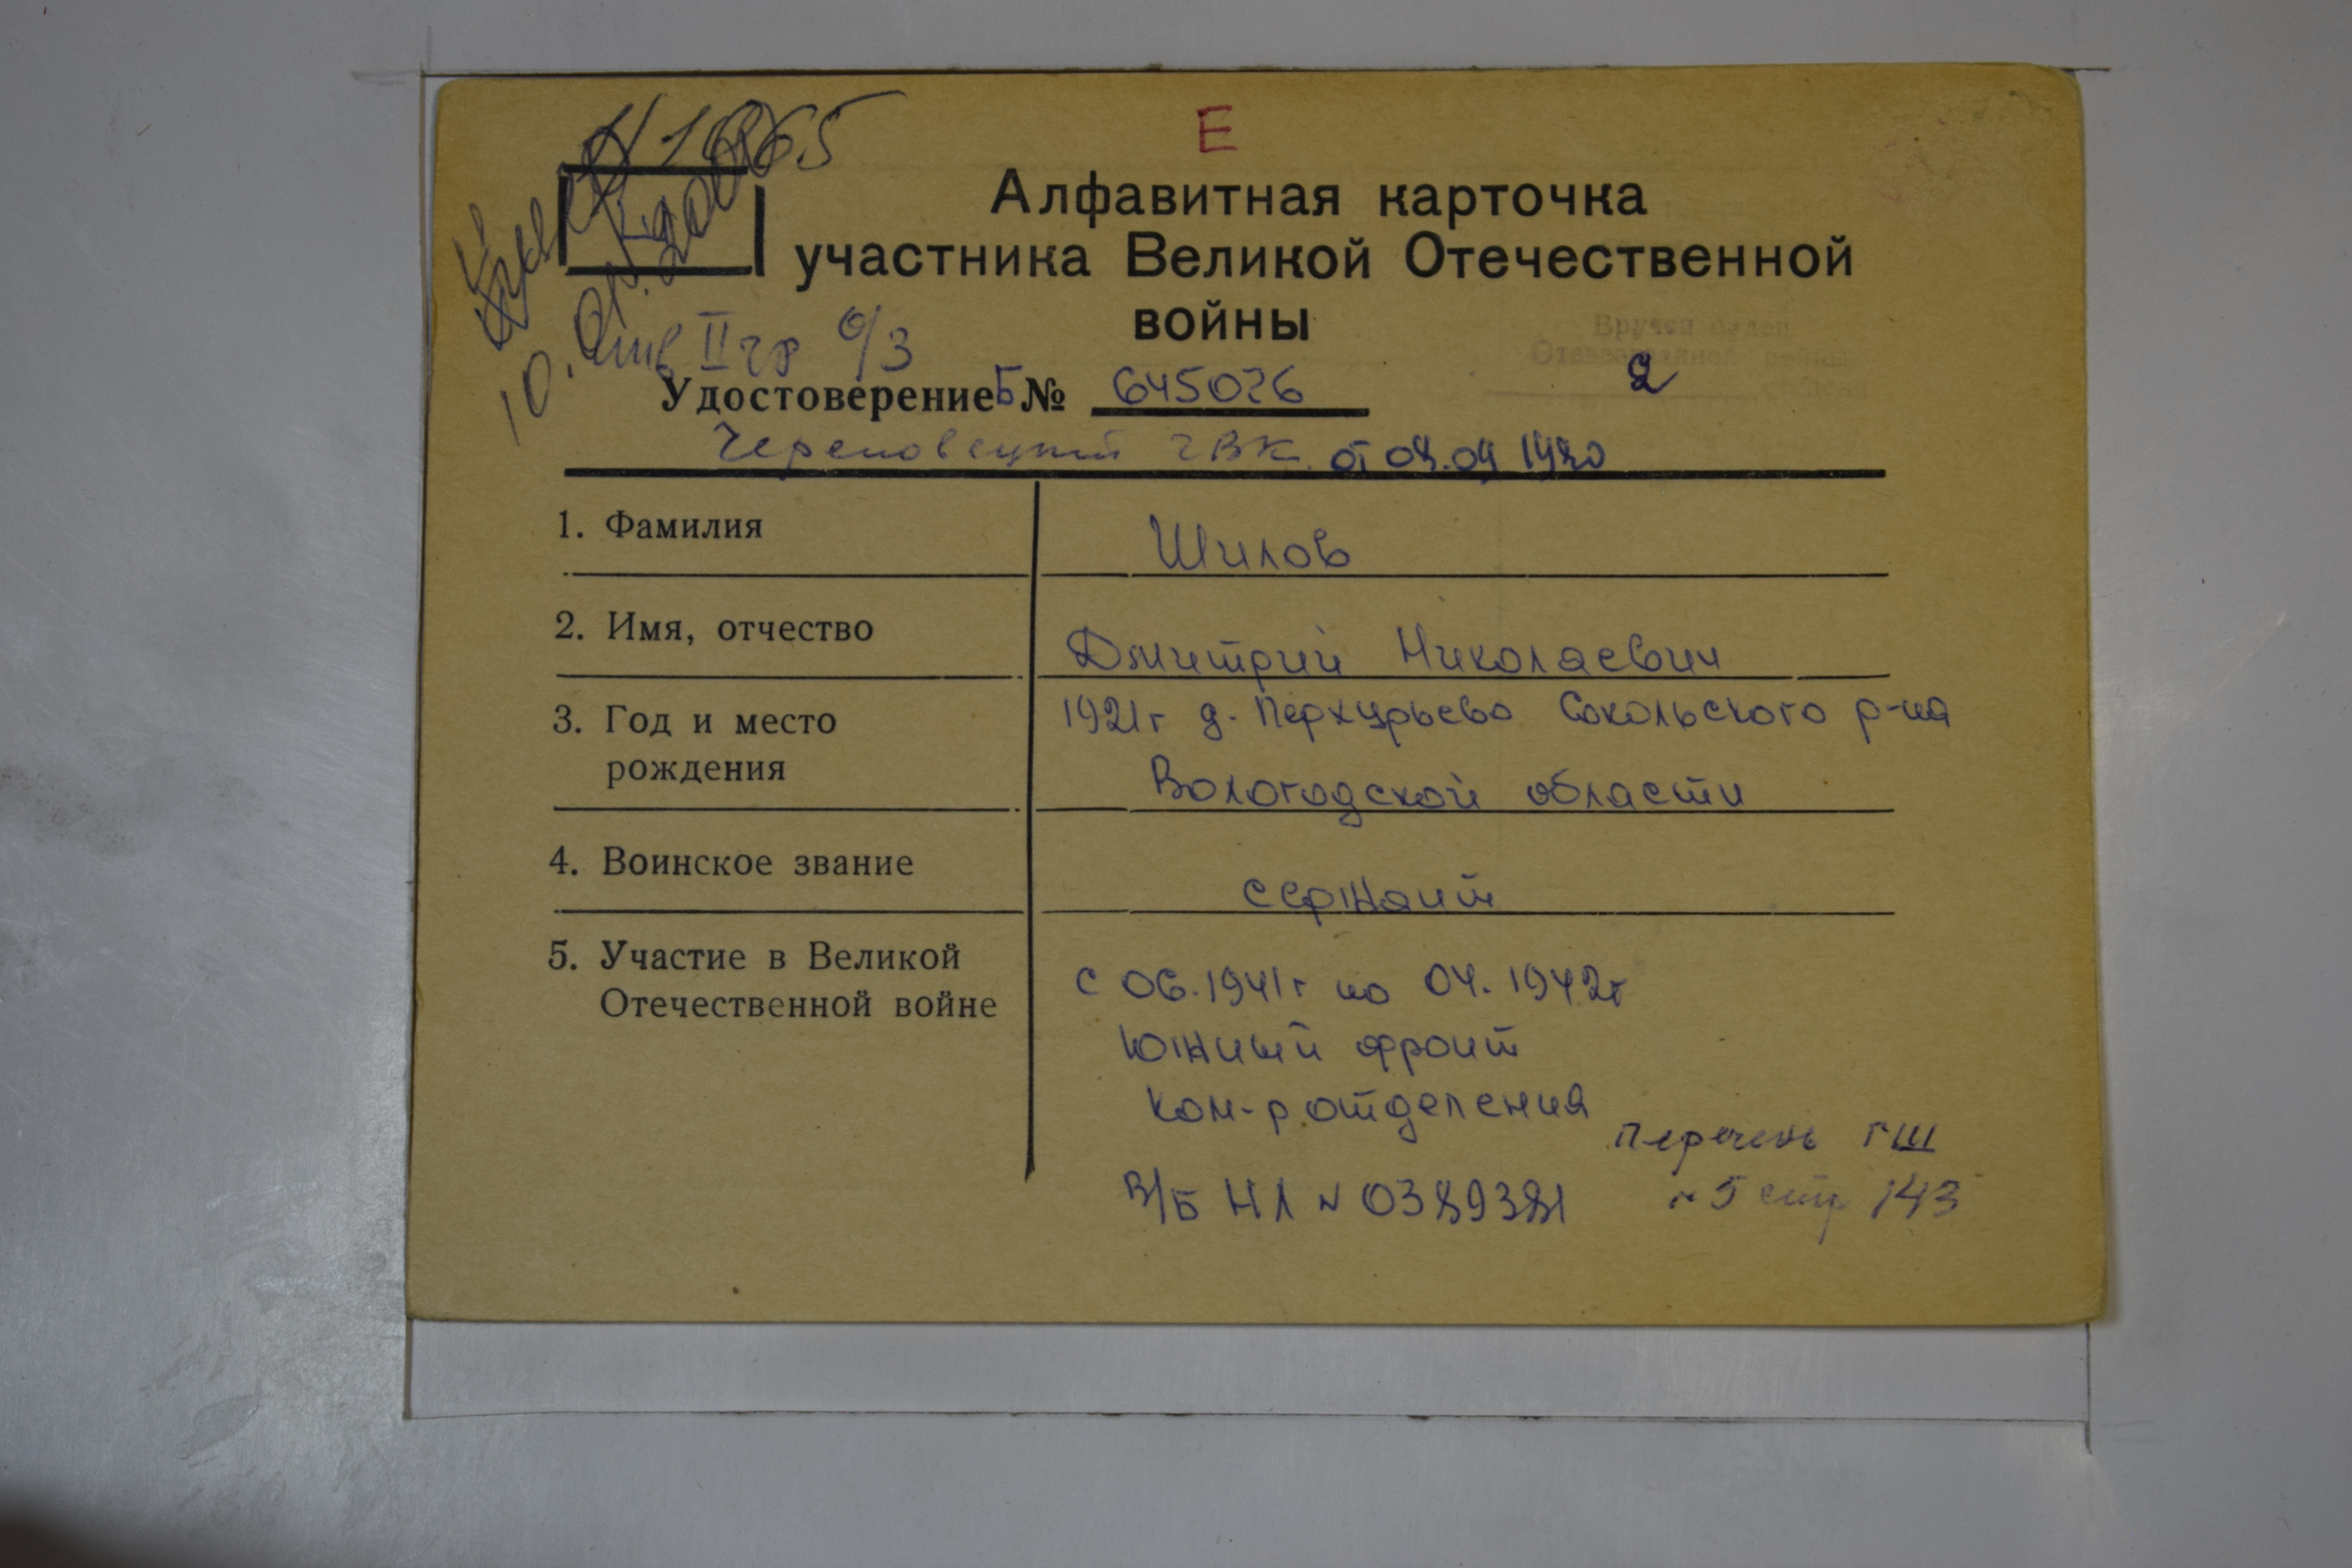 Е
Алфавитная карточка
участника Великой Отечественной
войны
Инв II гр О/З
Удостоверение Б № 645026
2
Вручен орден
Отечественной войны
степени
Череповецкий ГВК от 04.09 1980
1. Фамилия Шилов
2. Имя, отчество Дмитрий Николаевич
3. Год и место 1921г д. Перхурьево Сокольского р-на
рождения Вологодской области
4. Воинское звание сержант
5. Участие в Великой
Отечественной войне с 06.1941г по 04.1942г
Южный фронт
Ком-р отделения
Перечень ГШ
В/Б НЛ № 0389381
№ 5 стр 143